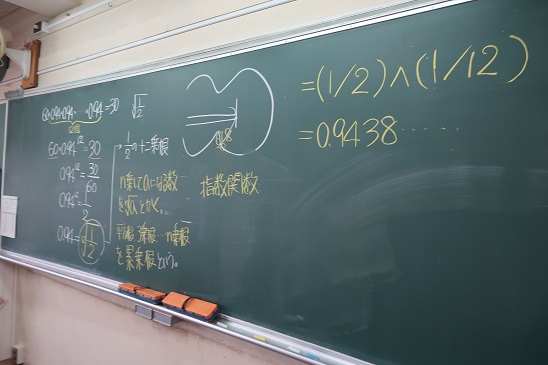 60×0.94×0.94×……0.94=30
12個
60×0.94^12=30
0.94^12=30/60
0.94^12=1/2
0.94=¹²√1/2
¹²√1/2
1/2の十二乗根
n乗してaになる数
を ⁿ√a とかく。
平方根 立方根…n乗根
を累乗根という。
0.8
指数関数
=(1/2)∧(1/12)
=0.9438……